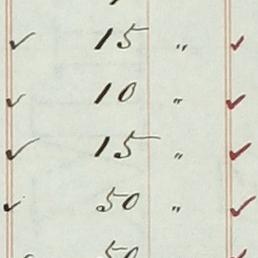 ✓ 15 " ✓
✓ 10 " ✓
✓ 15 " ✓
✓ 50 " ✓
50